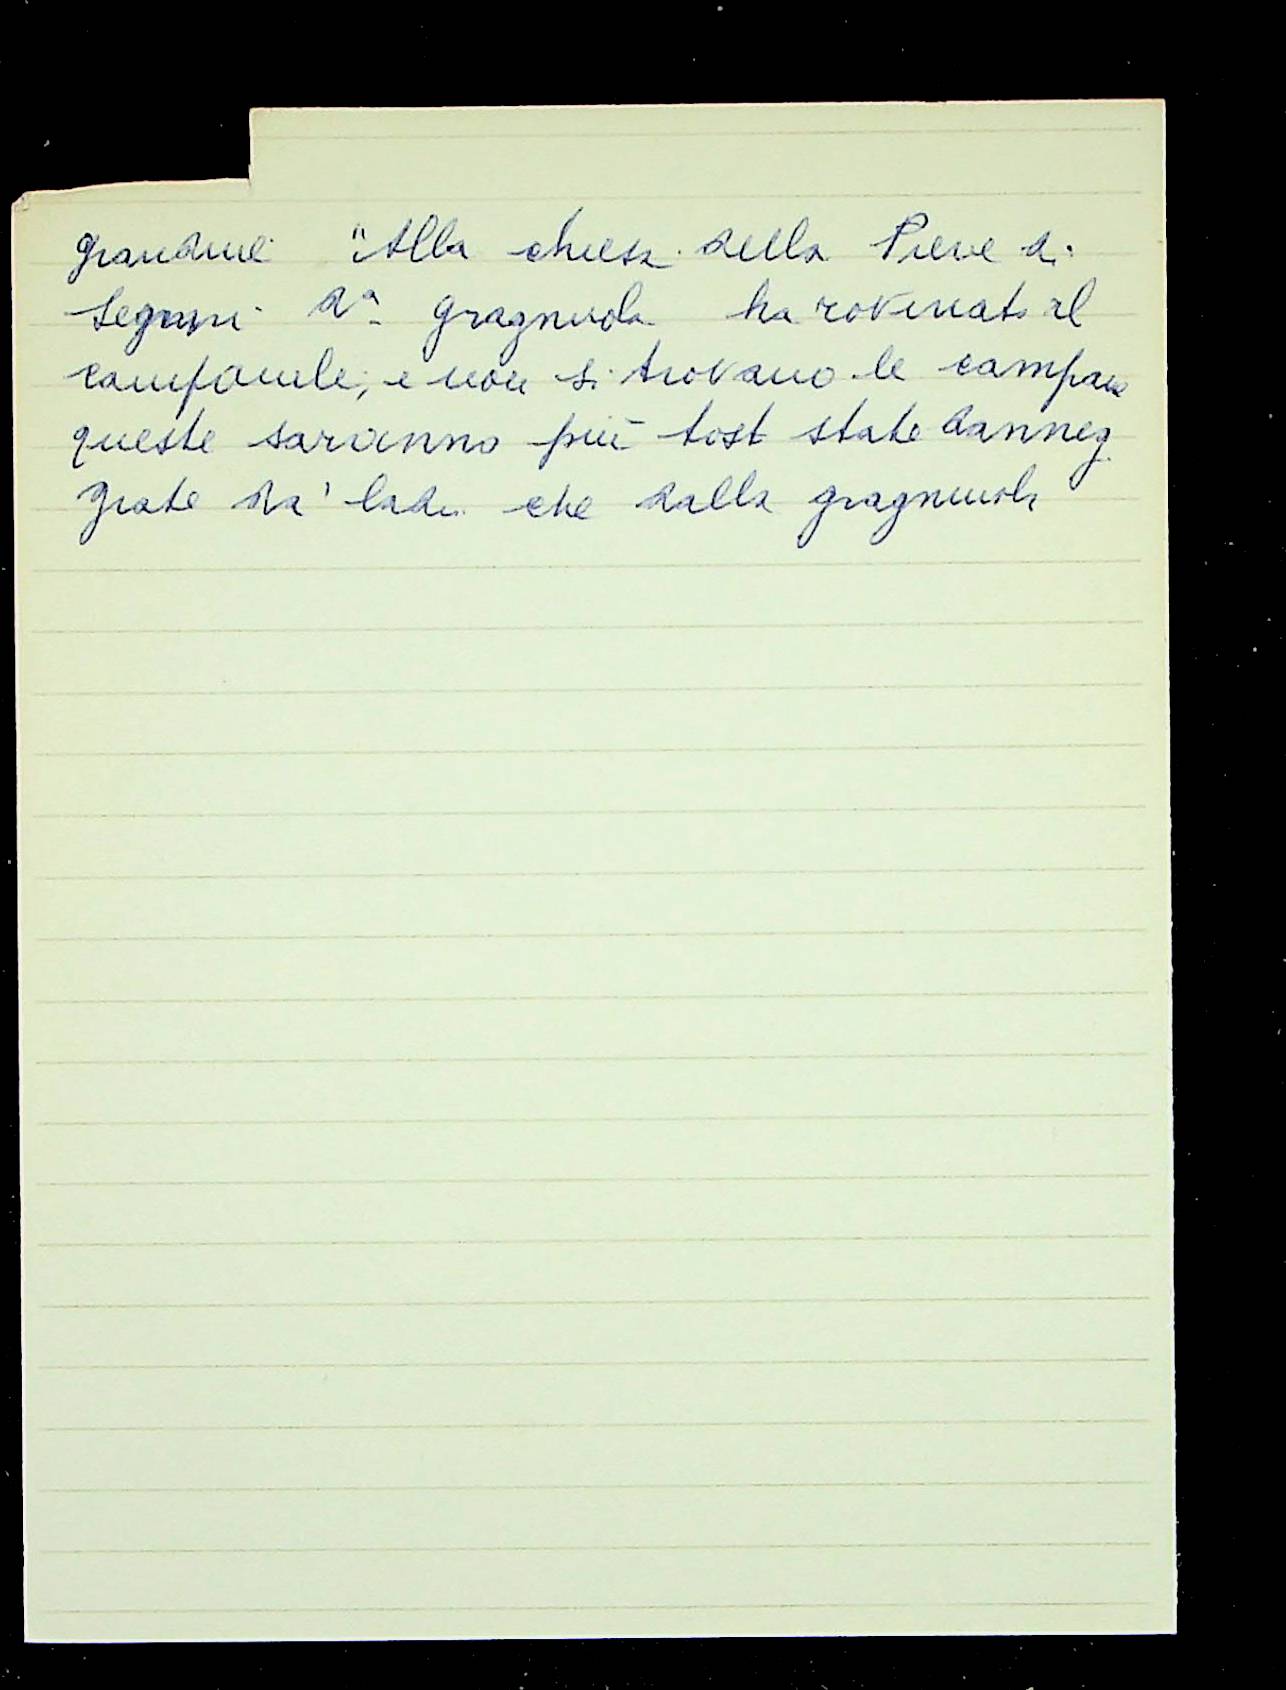 grandine "Alla chiesa della Pieve di
Segni dª gragnuola ha rovinato il
campanile, e non si trovano le campane
queste saranno più tosto state danneg
giate da' ladri che dalla gragnuola